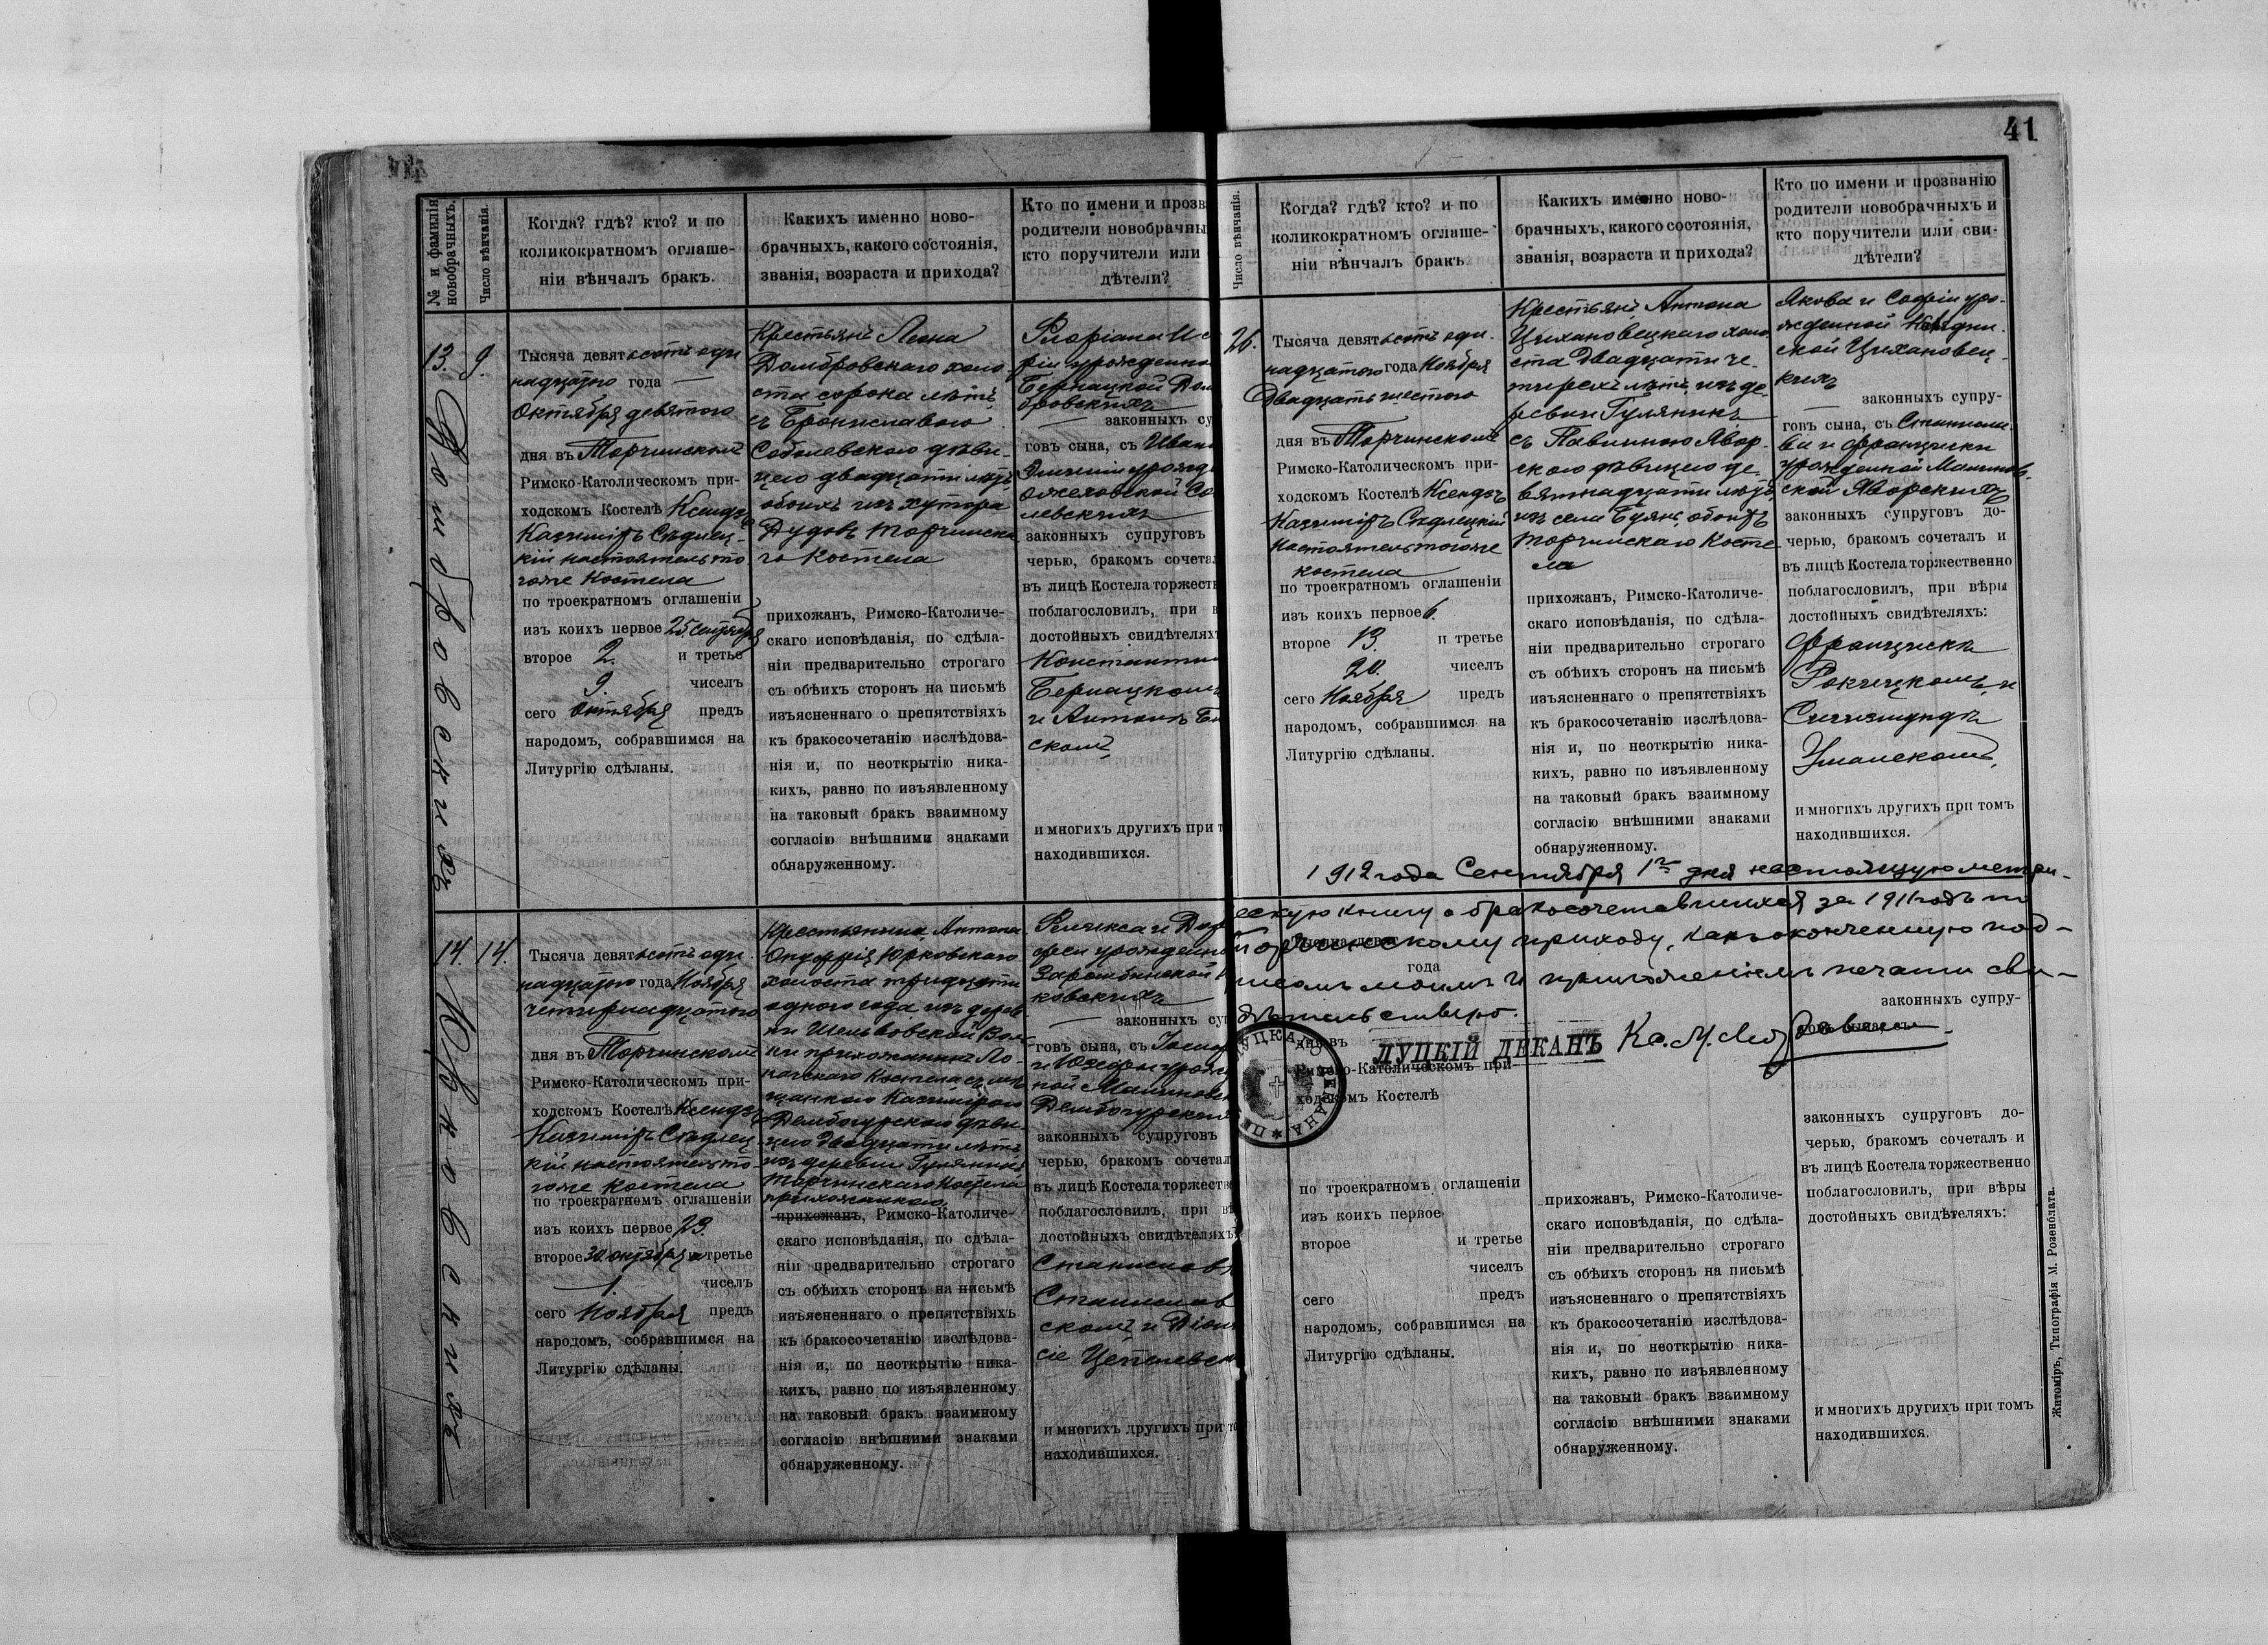 41
№ и фамилія новобрачныхъ.
Число вѣнчанія.
Когда? гдѣ? кто? и по
коликократномъ оглаше-
ніи вѣнчалъ бракъ.
Какихъ именно ново-
брачныхъ, какого состоянія,
званія, возраста и прихода?
Кто по имени и прозв
родители новобрачны
кто поручители или
дѣтели?
13.
9.
Домбровскихъ
Тысяча девятьсотъ оди
надцатого года —
Октября девятого
дня въ Торчинскомъ
Римско-Католическомъ при-
ходскомъ Костелѣ Ксендзъ
Казиміръ Сѣдлец-
кій настоятель то
гоже Костела
по троекратномъ оглашеніи
изъ коихъ первое 25 сентября
второе 2. и третье
9. чиселъ
сего Октября предъ
народомъ, собравшимся на
Литургію сдѣланы.
Крестьянъ Леона
Домбровскаго холо
ста сорока лѣтъ
съ Брониславою
Соболевскою дѣви-
цею двадцати лѣтъ
обоихъ изъ хутора
Дудовъ Торчинска
го Костела
прихожанъ, Римско-Католиче-
скаго исповѣданія, по сдѣла-
ніи предварительно строгаго
съ обѣихъ сторонъ на письмѣ
изъясненнаго о препятствіяхъ
къ бракосочетанію изслѣдова-
нія и, по неоткрытію ника-
кихъ, равно по изъявленному
на таковый бракъ взаимному
согласію внѣшними знаками
обнаруженному.
Флоріана и С
фіи урожденно
Бернацкой Дом
бровскихъ
законныхъ су
говъ сына, съ Ивана
урожд
левскихъ
законныхъ супруговъ
черью, бракомъ сочетал
въ лицѣ Костела торжеств
поблагословилъ, при в
достойныхъ свидѣтеляхъ
Константи
Бернацкомъ
и Антонѣ
скомъ
и многихъ другихъ при т
находившихся.
14.
14.
Юрковскихъ
Тысяча девятьсотъ оди
надцатого года Ноября
четырнадцатого
дня въ Торчинскомъ
Римско-Католическомъ при-
ходскомъ Костелѣ Ксендзъ
Казиміръ Сѣдлец
кій настоятель то-
гоже Костела
по троекратномъ оглашеніи
изъ коихъ первое 23.
второе 30 октября и третье
1. чиселъ
сего Ноября предъ
народомъ, собравшимся на
Литургію сдѣланы.
Крестьянина Антона
Онуфрія Юрковскаго
холоста тридцати
одного года изъ дерев
ни Шельвовской Вол
ки прихожанина Ло
начскаго Костела съ мѣ
щанкою Казимірою
Дембогурскою дѣви-
цею двадцати лѣтъ
изъ деревни Гулянинъ
Торчинскаго Костела
прихожанкою
прихожанъ, Римско-Католиче-
скаго исповѣданія, по сдѣла-
ніи предварительно строгаго
съ обѣихъ сторонъ на письмѣ
изъясненнаго о препятствіяхъ
къ бракосочетанію изслѣдова-
нія и, по неоткрытію ника-
кихъ, равно по изъявленному
на таковый бракъ взаимному
согласію внѣшними знаками
обнаруженному.
Феликса и
урожденно
ковскихъ
законныхъ су
говъ сына, съ Іосиф
и Юзефы урож
ной Малиновс
Дембогурских
законныхъ супруговъ
черью, бракомъ сочетал
въ лицѣ Костела торжеств
поблагословилъ, при вѣ
достойныхъ свидѣтеляхъ
Станиславѣ
Станислав
скомъ и Діони
сіе
и многихъ другихъ при то
находившихся.
Число вѣнчанія.
Когда? гдѣ? кто? и по
коликократномъ оглаше-
ніи вѣнчалъ бракъ
Какихъ именно ново-
брачныхъ, какого состоянія,
званія, возраста и прихода?
Кто по имени и прозванію
родители новобрачныхъ и
кто поручители или сви-
дѣтели?
26.
Тысяча девятьсотъ оди-
надцатого года Ноября
Двадцать шестого
дня въ Торчинскомъ
Римско-Католическомъ при-
ходскомъ Костелѣ Ксендзъ
Казиміръ Сѣдлецкій
Настоятель тогоже
костела
по троекратномъ оглашеніи
изъ коихъ первое 6.
второе 13. и третье
20. чиселъ
сего Ноября предъ
народомъ, собравшимся на
Литургію сдѣланы.
Крестьянъ Антона
Цихановецкаго холо
ста двадцати че-
тырехъ лѣтъ, изъ де-
ревни Гулянинъ
съ Павлиною Явор-
скою дѣвицею де-
вятнадцати лѣтъ
изъ села Буянь, обоихъ
Торчинскаго Косте
ла
прихожанъ, Римско-Католиче-
скаго исповѣданія, по сдѣла-
ніи предварительно строгаго
съ обѣихъ сторонъ на письмѣ
изъясненнаго о препятствіяхъ
къ бракосочетанію изслѣдова-
нія и, по неоткрытію ника-
кихъ, равно по изъявленному
на таковый бракъ взаимному
согласію внѣшними знаками
обнаруженному.
Якова и Софіи уро-
жденной
ской Цихановец-
кихъ
законныхъ супру-
говъ сына, съ Станисла-
ва и Францишки
урожденной Малинов-
ской Яворскихъ
законныхъ супруговъ до-
черью, бракомъ сочеталъ и
въ лицѣ Костела торжественно
поблагословилъ, при вѣры
достойныхъ свидѣтеляхъ:
Францискѣ
Рокицкомъ и
Сигизмундѣ
Уманскомъ
и многихъ другихъ при томъ
находившихся.
1912 года Сентября 1го дня настоящую метри-
ескую книгу о бракосочетавшихся за 1911 годъ по
Торчинскому приходу, какъ оконченную под-
писомъ моимъ и приложеніемъ печати сви-
дѣтельствую.
ЛУЦКІЙ ДЕКАНЪ Кс. М.
года
законныхъ супру-
говъ сына, съ
дня въ
Римско-Католическомъ при-
ходскомъ Костелѣ
по троекратномъ оглашеніи
изъ коихъ первое
второе и третье
чиселъ
сего предъ
народомъ, собравшимся на
Литургію сдѣланы.
прихожанъ, Римско-Католиче-
скаго исповѣданія, по сдѣла-
ніи предварительно строгаго
съ обѣихъ сторонъ на письмѣ
изъясненнаго о препятствіяхъ
къ бракосочетанію изслѣдова-
нія и, по неоткрытію ника-
кихъ, равно по изъявленному
на таковый бракъ взаимному
согласію внѣшними знаками
обнаруженному.
законныхъ супруговъ до-
черью, бракомъ сочеталъ и
въ лицѣ Костела торжественно
поблагословилъ, при вѣры
достойныхъ свидѣтеляхъ:
и многихъ другихъ при томъ
находившихся.
Житоміръ, Типографія М. Розенблата.